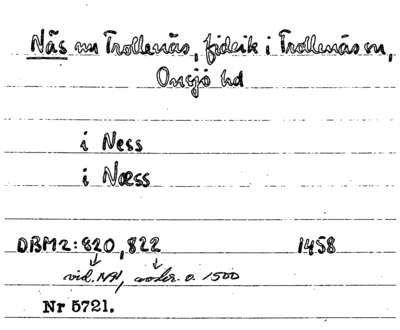 Näs nu Trollenäs, fideik i Trollenäs sn,
Onsjö hd
i Ness
i Næss
DBM2:820, 822 1458
vid. NM, o. 1500
Nr 5721.